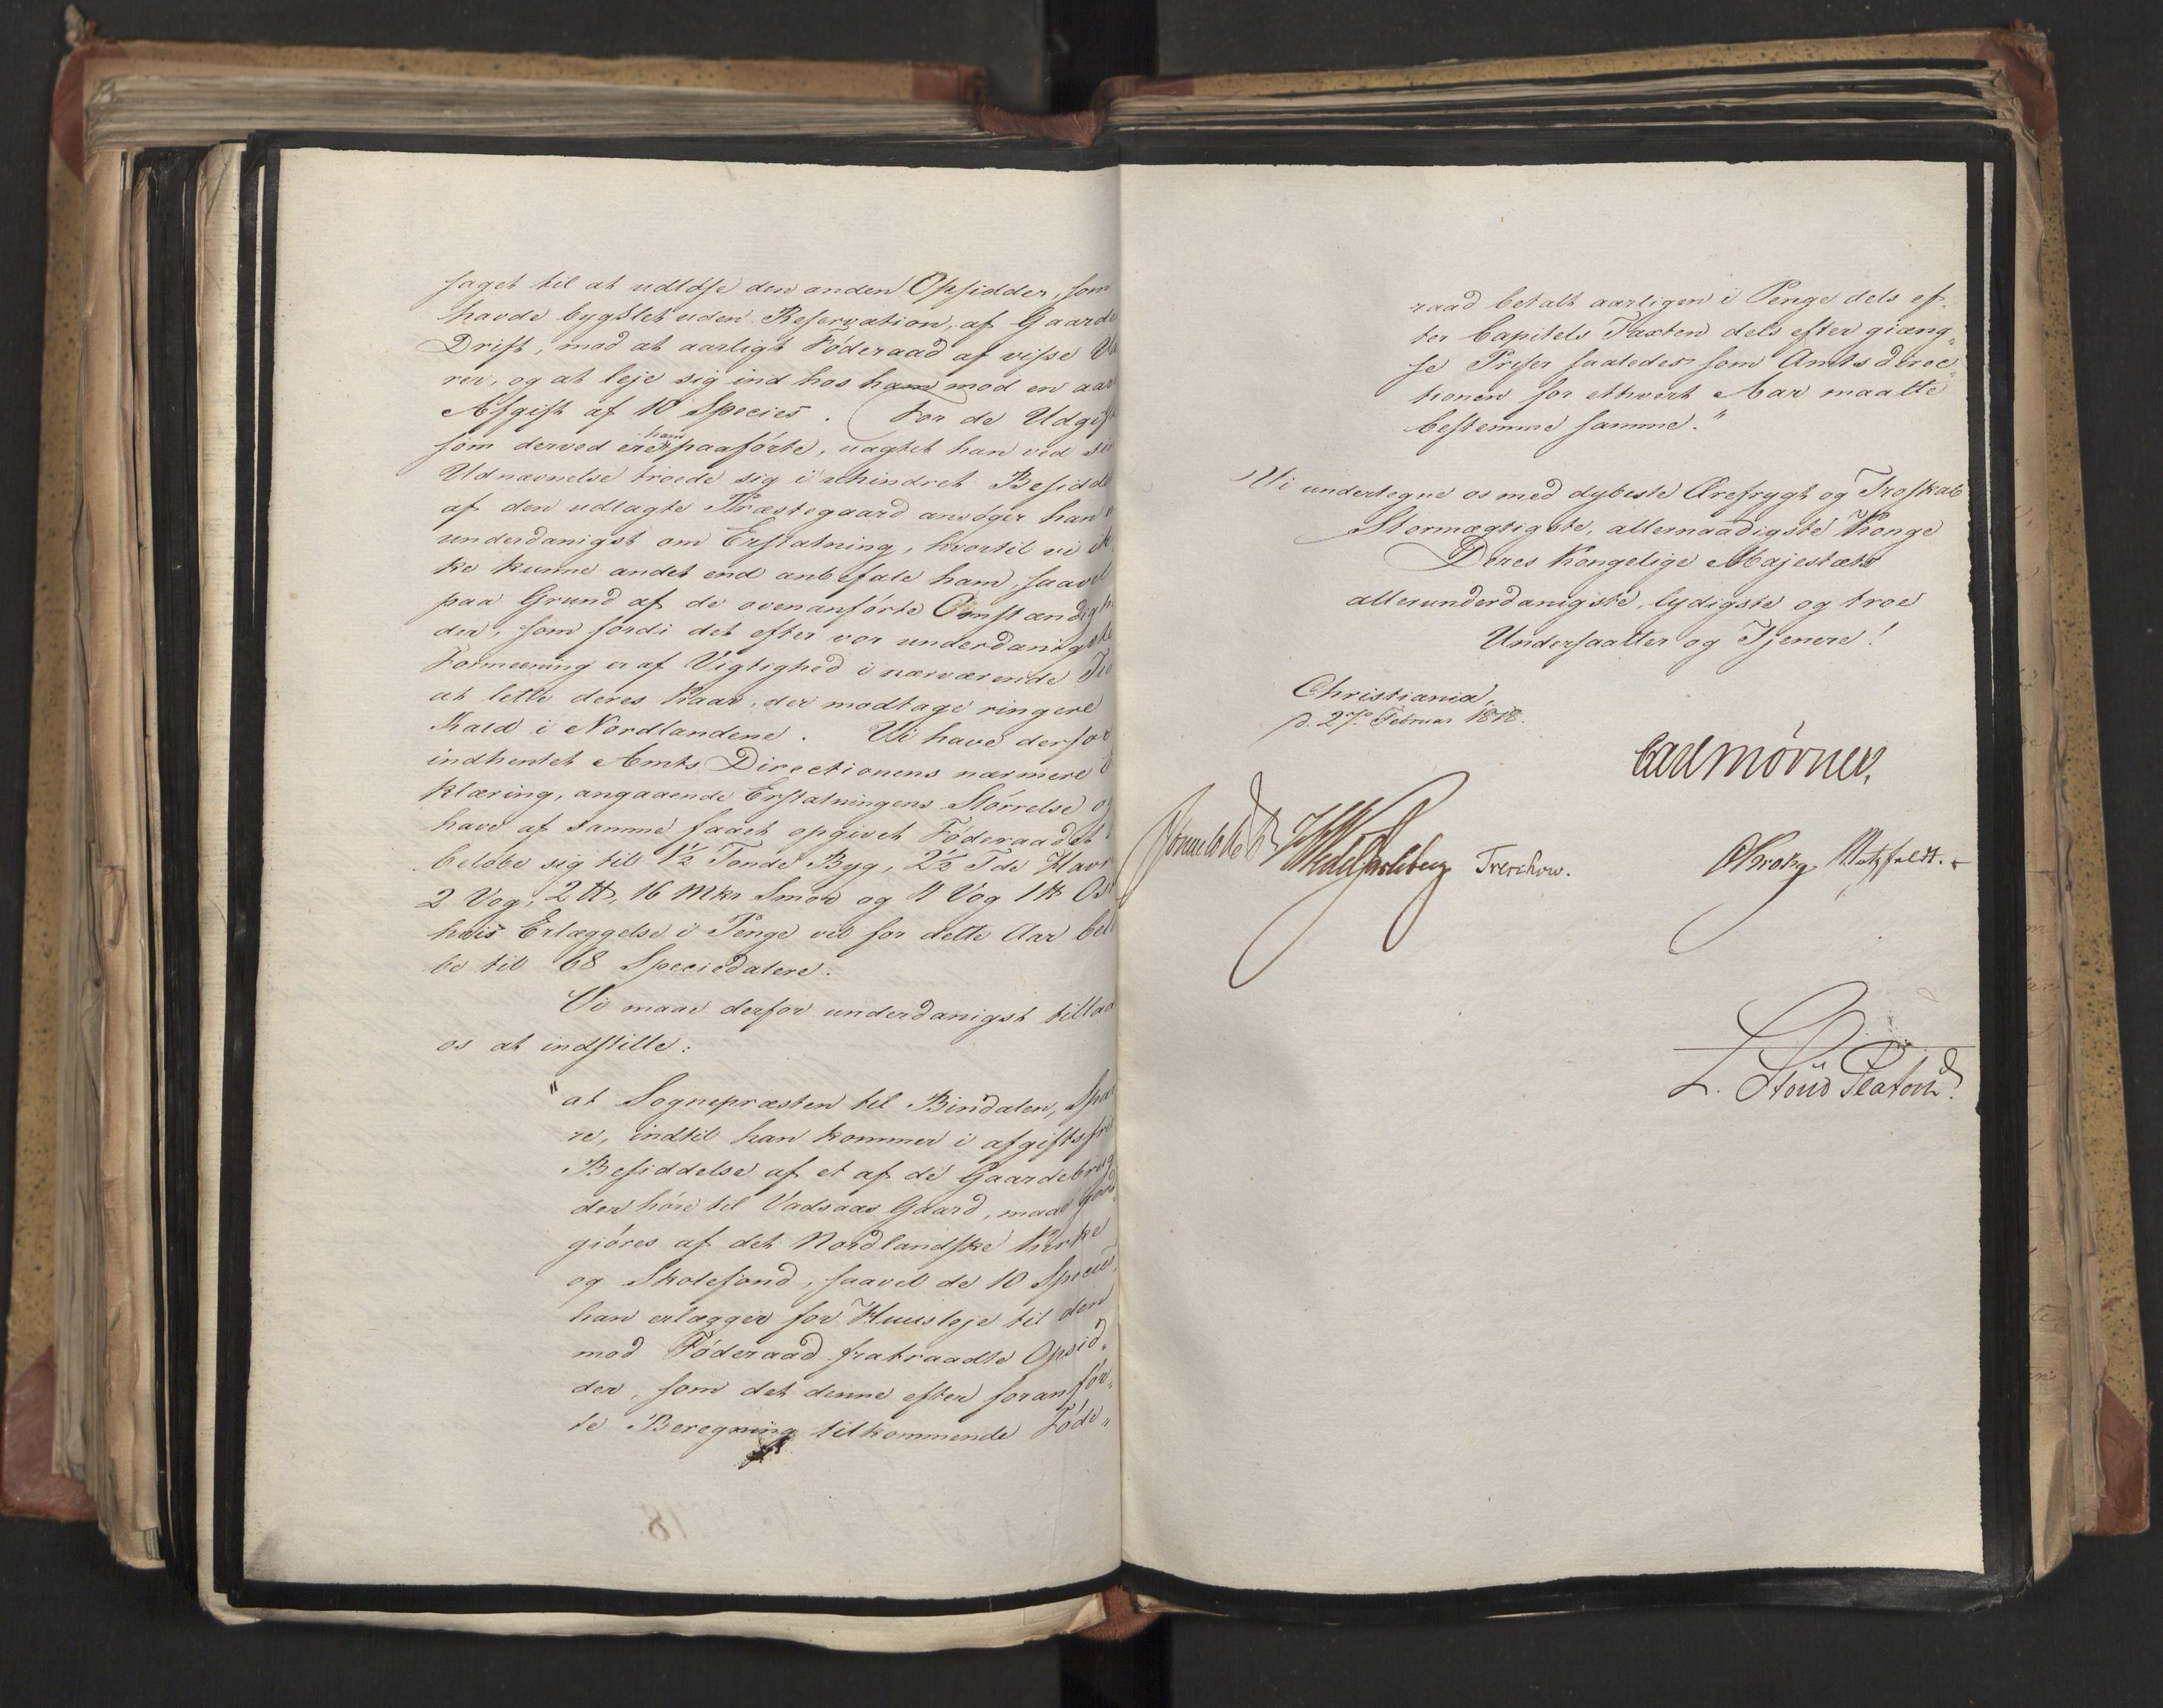 saget til at udløse den anden Opsidder, som
havde bygslet uden Reservation, af Gaarde
Drift, mod at aarligt Föderaad af visse Va
rer, og at leje sig ind hos ham mod en aar
Afgift af 10 Species. For de Udgif
som derved ere ham paaförte, uagtet han ved sin
Udnævnelse troede sig i uhindret Besidde
af den udlagte Præstegaard ansöger han
underdanigst om Erstatning, hvortil vi ik
ke kunne andet end anbefale ham, saavel
paa Grund af de ovenanförte Omstændighe
der, som fordi det efter vor underdanigste
Formeening er af Vigtighed i nærværende Tid
at lette deres Kaar, der modtage ringere
Kald i Nordlandene. Vi have derfor
indhentet Amts Directionens nærmere E
klæring, angaaende Erstatningens Störrelse og
have af samme faaet opgivet Föderaadet
belöbe sig til 1½ Tønde Byg, 2½ Tde Havr
2 Vog, 2 ℔, 16 Mkr Smör og 4 Vog 1 ℔ Ost
hvis Erlæggelse i Penge vil for dette Aar belö
be til 68 Speciedalere.
Vi maae derfor underdanigst tillad
os at indstille:
"at Sognepræsten til Bindalen, Spar
re, indtil han kommer i afgiftsfri
Besiddelse af et af de Gaardebrug
der höre til Vadsaas Gaard, maae god
giöres af det Nordlandske Kirke
og Skolefond, saavel de 10 Species,
han erlægger for Huusleje til den
mod Föderaad fratraadte Opsid„
der, som det denne efter foranför„
te Beregning tilkommende Föde„
raad betalt aarligen i Penge dels ef„
ter Capitels Taxten dels efter giæng„
se Priser saaledes som Amtsdirec„
tionen for ethvert Aar maatte
bestemme samme."
Vi undertegne os med dybeste Ærefrygt og Troskab
Stormægtigste, allernaadigste Konge
Deres Kongelige Majestæts
allerunderdanigste, lydigste og troe
Undersaatter og Tjenere!
Christiania,
d. 27de Februar 1818.
Carl Mörner,
Sommerhielm Wedel Jarlsberg Treschow. Krohg Motzfeldt.
L. Stoud Platou